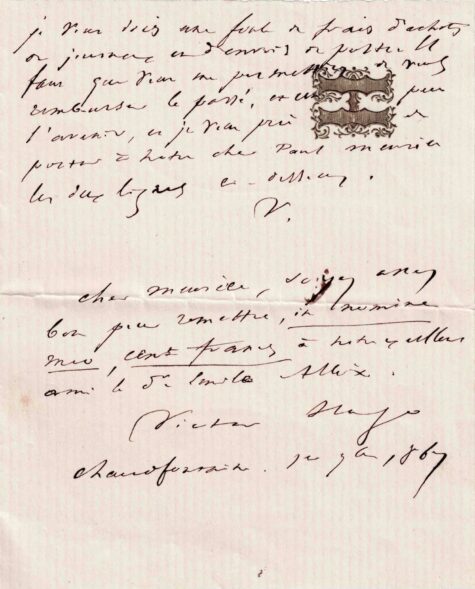 je vous dois une foule de frais d'achats
de journaux et d'envois de poste. Il
faut que vous me permettiez de vous
rembourser le passé, et un peu
l'avenir, et je vous prie de
porter à notre cher Paul Meurice
les deux lignes ci-dessous.
V.
cher Meurice, soyez assez
bon pour remettre, in nomine
meo, cent francs à notre excellent
ami le Dr Emile Allix.
Victor Hugo
Chaudfontaine. 1867